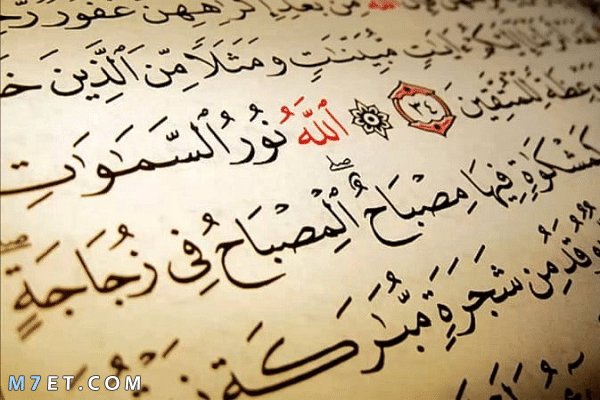 مِنۢ بَعْدِ إِكْرَٰهِهِنَّ غَفُورٌ
ءَايَٰتٍ مُّبَيِّنَٰتٍ وَمَثَلًا مِّنَ ٱلَّذِينَ
لِّلْمُتَّقِينَ ٣٤ ٱللَّهُ نُورُ ٱلسَّمَٰوَٰتِ
كَمِشْكَوٰةٍ فِيهَا مِصْبَاحٌ ۖ ٱلْمِصْبَاحُ فِى زُجَاجَةٍ ۖ
مِن شَجَرَةٍ مُّبَٰرَكَةٍ
M7ET.COM